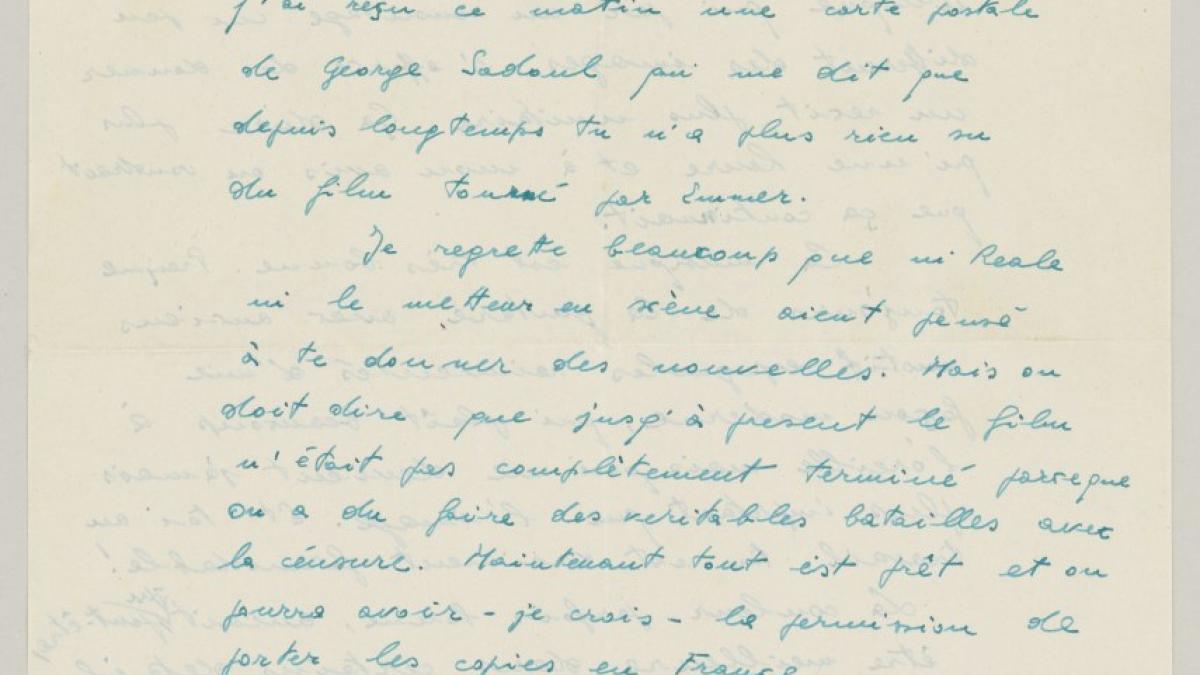 j'ai reçu ce matin une carte postale
de George Sadoul qui me dit que
depuis longtemps tu n'a plus rien su
du film tourné par Emmer.
Je regrette beaucoup que ni Reale
ni le metteur en scène aient pensé
à te donner des nouvelles. Mais on
doit dire que jusq'à present le film
n'était pas complètement terminé parceque
on a du faire des veritables batailles avec
la cénsure. Maintenant tout est prêt et on
pourra avoir - je crois - la permission de
porter les copies en France